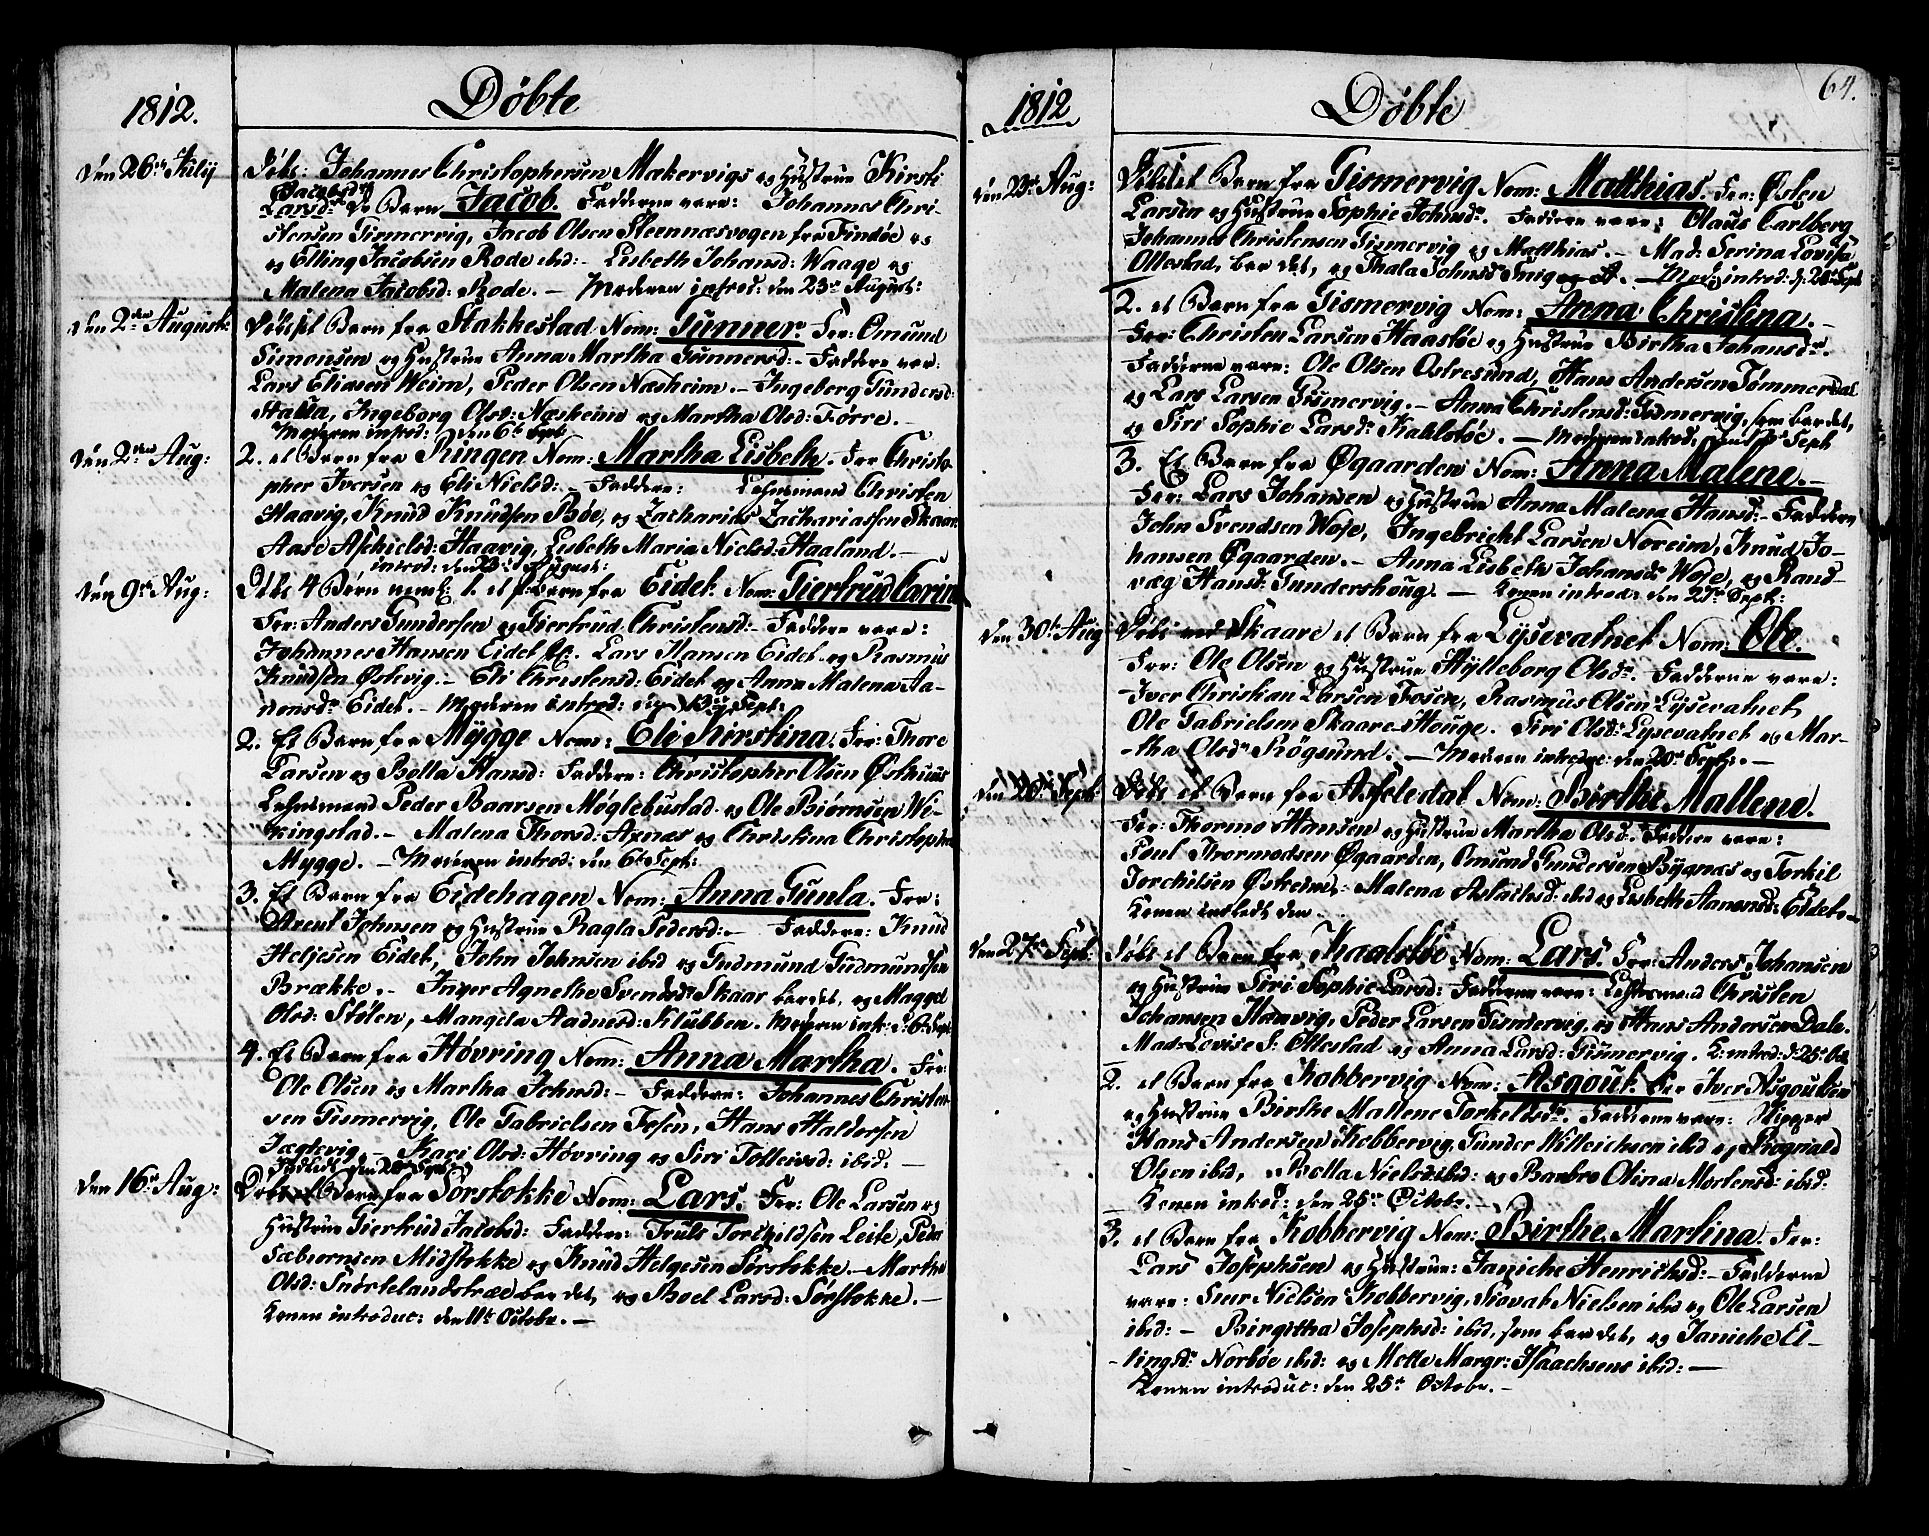 1812.
Døbte
Den 26de Julij
Døbt: Johannes Christophersen Makervigs og Hustrue Kirsti
Jacobsd:
Larsd: Barn Jacob. Fadderne vare: Johannes Chri-
stensen Gismervig, Jacob Olsen Steennæsvogen fra Findøe og
og Elling Jacobsen Rode ibid: – Lisbeth Johansd: Waage og
Malena Jacobsd: Rode. – Moderen introd: den 23de August:
Den 2den August:
Døbt et Barn fra Stakkestad Nom: Gunner. For: Omund
Simonsen og Hustrue Anna Martha Gunnersd: – Faddere var:
Lars Eliasen Weim, Peder Olsen Næsheim. – Ingeborg Gundersd:
Stalla, Ingeborg Olsd: Næsheim og Martha Olsd: Førre. –
Moderen introd: den 6te Sept:
Den 2den Aug:
2. et Barn fra Ringen Nom: Martha Lisbeth. For: Christo-
pher Iversen og Eli Nielsd: – Faddere: Lehnsmand Christen
Haavig, Knud Knudsen Bøe, og Zacharias Zachariassen Skaar.
Aase Askielsd: Haavig, Lisbeth Maria Nielsd: Haaland. –
introd: den 23de August:
Den 9de Aug:
Døbt 4 Børn neml: 1. et Barn fra Eidet Nom: Giertrud Carin
For: Anders Gundersen og Giertrud Christensd: – Faddere vare:
Johannes Hansen Eidet, Lars Hansen Eidet og Rasmus
Knudsen Østevig. – Eli Christensd: Eidet og Anna Malena Aa-
nensd: Eidet. – Moderen introd: Sept:
2. Et Barn fra Mygge Nom: Eli Kirstina. For: Thore
Larsen og Bolla Hansd: Faddere: Christopher Olsen Østhuus
Lehnsmand Peder Baarsen Møglebustad og Ole Biørnsen Wi-
kingstad. – Malena Thorsd: Axnæs og Christina Christophe
Mygge. – Moderen introd: den 6te Sept:
3. Et Barn fra Eidehagen Nom: Anna Gunla. For:
Arent Johnsen og Hustrue Ragla Pedersd: – Faddere: Knud
Heljesen Eidet, John Johnsen ibid og Gudmund Gudmundsen
Brække. – Inger Agnethe Svendsd: Skaar bar det, og Maggel
Olsd: Stølen, Mangela Aadnesd: Klubben. Moderen int: d: 6te Sept:
4. Et Barn fra Høvring Nom: Anna Martha. For:
Ole Olsen og Martha Johnsd: – Faddere: Johannes Christen-
sen Gismervig, Ole Gabrielsen Fosen, Hans Haldorsen
Jægtevig. – Kari Olsd: Høvring og Siri Tolleivsd: ibid: –
Indledt den 20de Sept
Den 16de Aug:
Døbt et Barn fra Sørstokke Nom: Lars. For: Ole Larsen og
Hustrue Giertrud Jacobsd: Faddere: Truls Torchildsen Leite, Peder
Sæbiørnsen Midstokke og Knud Helgesen Sørstokke. – Martha
Olsd: Snørtelandstræe bar det, og Boel Larsd: Sørstokke. –
Konen introduc: den 11te Octobr. –
1812
Døbte
64.
Den 23de Aug:
Døbt et Barn fra Gismervig Nom: Matthias. For: Østen
Larsen og Hustrue Sophie Johnsdr. Faddere vare: Olaus Carlberg
Johannes Christensen Gismervig og Matthias. – Mad: Serina Lovisa
Ollestad, bar det, og Thala Johnsd: – Mod: introd: d: 20de Sept
2. et Barn fra Gismervig Nom: Anna Christina. –
For: Christen Larsen Haasløe og Hustrue Birtha Johansdr.
Fadderne vare: Ole Olsen Ostresund, Hans Andersen Tømmerdal
og Lars Larsen Gismervig. – Anna Christensd: Gismervig, som bar det,
og Siri Sophie Larsd: Kahlsløe. – Moderen introd: Sept
3. Et Barn fra Øgaarden Nom: Anna Malene. –
For: Lars Johansen og Hustrue Anna Malena Hansd: – Faddere
John Svendsen Woje, Ingebricht Larsen Noreim, Knud Jo-
hansen Øgaarden. – Anna Lisbeth Johansd: Woje, og Rand-
væg Hansd: Gundershoug. – Konen introd: den 27de Sept:
Den 30te Aug
Døbt ved Skaare et Barn fra Lysevatnet Nom: Ole.
For: Ole Olsen og Hustrue Hylleborg Olsdr. Fadderne vare:
Iver Christian Larsen Fosen, Rasmus Olsen Lysevatnet,
Ole Gabrielsen Skaare-Houge. Siri Olsd: Lysevatnet og Mar-
tha Olsdr Røgsund. – Moderen introd: den 20de Sept: –
Den 20de Sept:
Døbt et Barn fra Axseledal Nom: Birthe Mallene.
For: Thormo Hansen og Hustrue Martha Olsd. Faddere vare:
Poul Thormodsen Øgaarden, Omund Gundersen Bygnæs og Torkil
Torchilsen Østreim. Malena Aslachsd: ibid og Lisbeth Aanensd: Eidet. –
Konen indledt den
Den 27de Sept:
Døbt et Barn fra Kaalsløe Nom: Lars. For: Anders Johansen
og Hustrue Siri Sophie Larsd: Fadderne vare: Lehnsmand Christen
Johansen Haavig, Peder Larsen Gismervig, og Hans Andersen Dale.
Mad: Lovise S: Ollestad og Anna Larsd: Gismervig. K: introd: d: 25de Oct
2. et Barn fra Kobbervig Nom: Asgout. For Iver Asgoutsen
og Hustrue Birthe Mallene Torkeltsdr. Fadderne vare: Skipper
Hans Andersen Kobbervig, Gunder Willeichsen ibid og Rognald
Olsen ibid, Bolla Nielsd: ibid: og Barbro Olina Mortensd: ibid:
Konen introd: den 25de Octobr. –
3. et Barn fra Kobbervig Nom: Birthe Martina. For:
Lars Josephsen og Hustrue: Janiche Henrichsd: – Fadderne
vare: Siur Nielsen Kobbervig, Siovat Nielsen ibid og Ole Larsen
ibid: – Birgitha Josephsd: ibid, som bar det, og Janiche El-
lingsdr Norbøe ibid: og Mette Margr: Isaachsens ibid: –
Konen introduc: den 25de Octobr. –